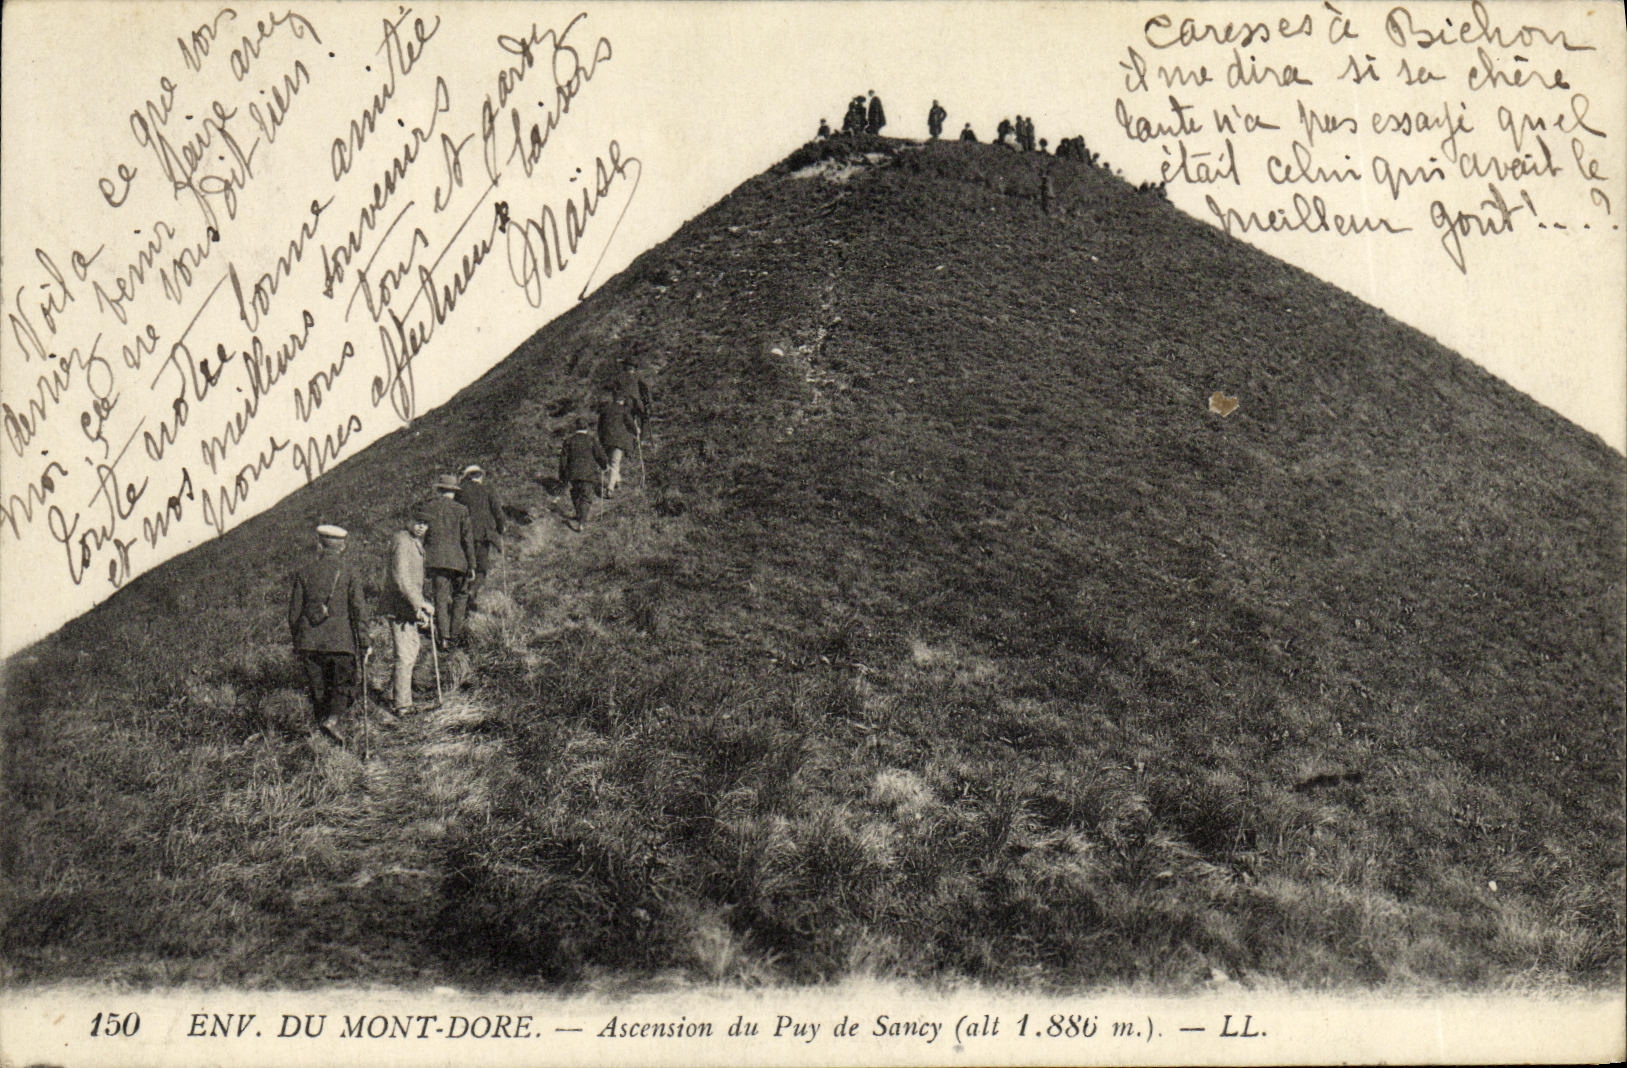 Voilà ce que vous
devriez venir faire avec
moi, ça ne vous dit rien ?
toute notre bonne amitié
et nos meilleurs souvenirs
pour vous tous et gardez
mes affectueux baisers
Maïse
caresses à Bichon
il me dira si sa chère
tante n'a pas essayé quel
était celui qui avait le
meilleur goût !... ?
150 ENV. DU MONT-DORE. — Ascension du Puy de Sancy (alt 1.886 m.). — LL.